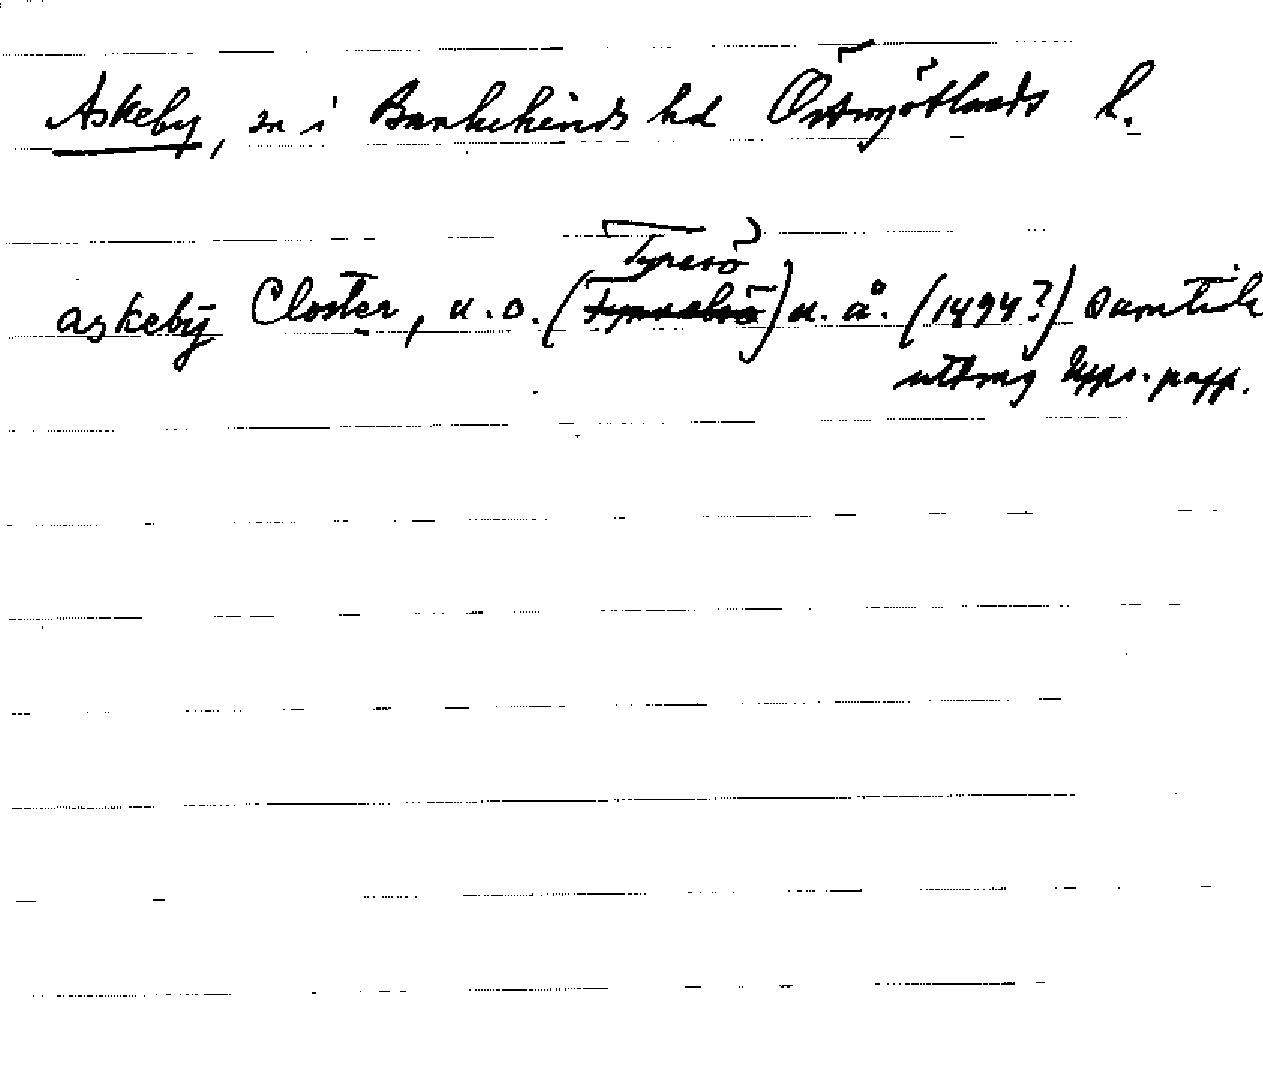 Askeby, sn i Bankekinds hd Östergötlands l.
Tyresö
askeby Closter, u.o. ( ) u. å. (1494?) samtida
utdrag Upps. papp.